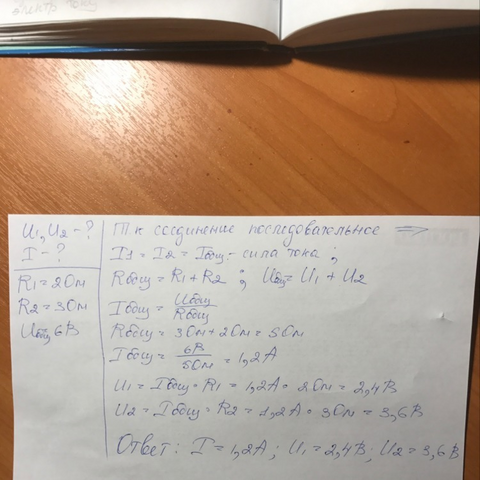 электр току
U1, U2 - ?
I - ?
R1 = 2 Ом
R2 = 3 Ом
Uобщ 6В
Тк соединение последовательное =>
I1 = I2 = Iобщ - сила тока ;
Rобщ = R1 + R2 ; Uобщ = U1 + U2
Iобщ = Uобщ / Rобщ
Rобщ = 3 Ом + 2 Ом = 5 Ом
Iобщ = 6В / 5 Ом = 1,2 А
U1 = Iобщ • R1 = 1,2 А • 2 Ом = 2,4 В
U2 = Iобщ • R2 = 1,2 А • 3 Ом = 3,6 В
Ответ: I = 1,2 А ; U1 = 2,4 В ; U2 = 3,6 В